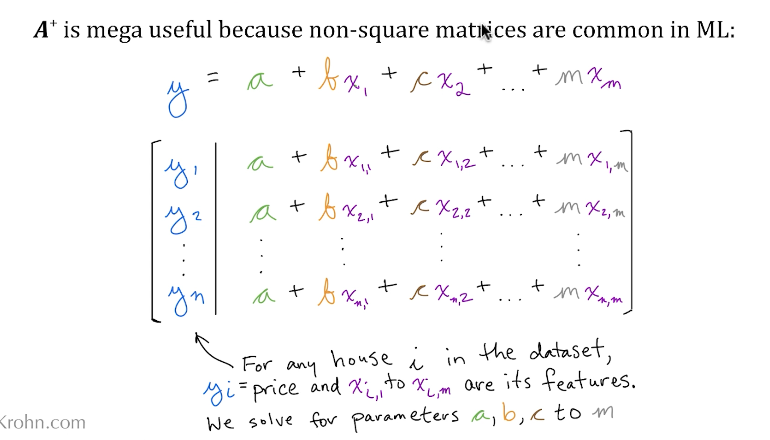 A⁺ is mega useful because non-square matrices are common in ML:
y = a + bx₁ + cx₂ + ... + mxₘ
y₁ a + bx₁,₁ + cx₁,₂ + ... + mx₁,ₘ
y₂ a + bx₂,₁ + cx₂,₂ + ... + mx₂,ₘ
⋮ ⋮ ⋮ ⋮ ⋮
yn a + bxₙ,₁ + cxₙ,₂ + ... + mxₙ,ₘ
For any house i in the dataset,
yi = price and xᵢ,₁ to xᵢ,ₘ are its features.
We solve for parameters a, b, c to m
Krohn.com